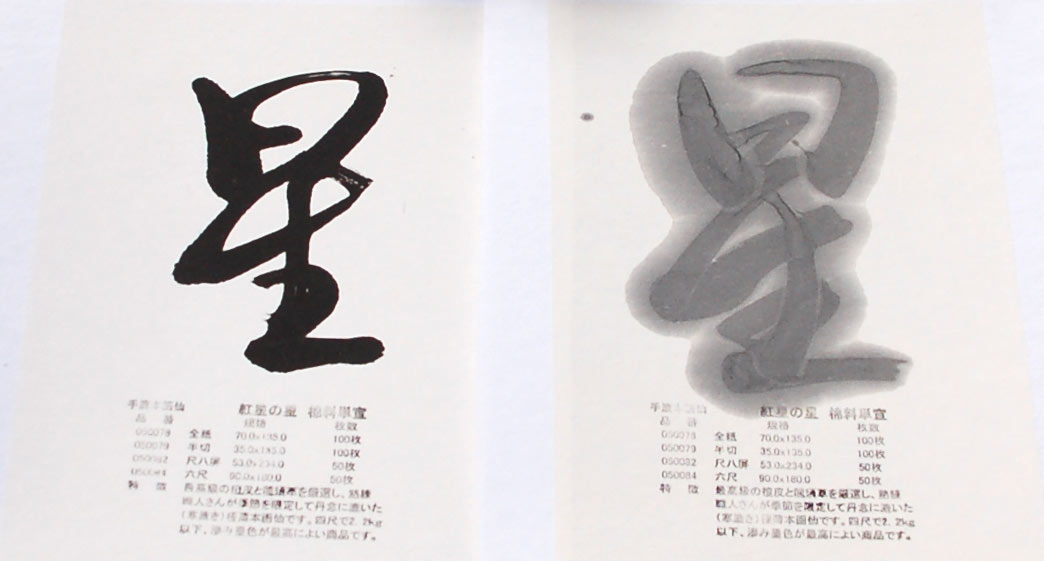 星
手漉本画仙 紅星の星 棉料単宣
品番 規格 枚数
050078 全紙 70.0x135.0 100枚
050079 半切 35.0x135.0 100枚
050082 尺八屏 53.0x234.0 50枚
050084 六尺 90.0x180.0 50枚
特徴 最高級の檀皮と
を厳選し、熟練
職人さんが季節を限定して丹念に漉いた
(寒漉き)
本画仙です。四尺で2.2kg
以下、滲み墨色が最高によい商品です。
星
手漉本画仙 紅星の星 棉料単宣
品番 規格 枚数
050078 全紙 70.0x135.0 100枚
050079 半切 35.0x135.0 100枚
050082 尺八屏 53.0x234.0 50枚
050084 六尺 90.0x180.0 50枚
特徴 最高級の檀皮と
を厳選し、熟練
職人さんが季節を限定して丹念に漉いた
(寒漉き)
本画仙です。四尺で2.2kg
以下、滲み墨色が最高によい商品です。